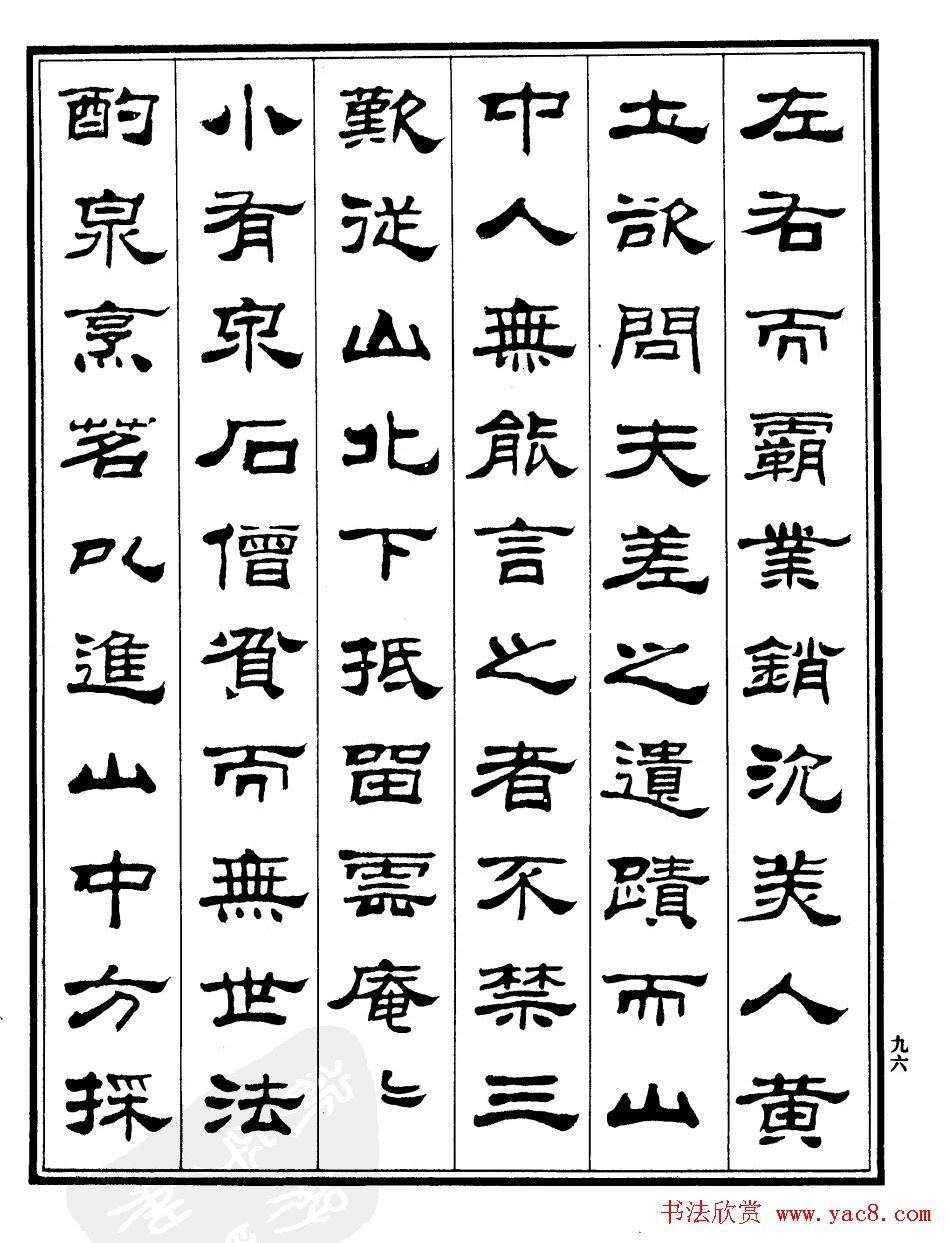 左右而霸業銷沉美人黃
土欲問夫差之遺蹟而山
中人無能言之者不禁三
歎從山北下抵留雲庵〻
小有泉石僧貧而無世法
酌泉烹茗以進山中方採
九六
书法欣赏 www.yac8.com